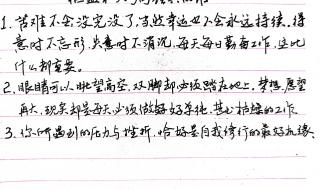 1. 苦难不会没完没了,当然幸运也不会永远持续。得
意时不忘形,失意时不消沉。每天每日勤奋工作,这比
什么都重要。
2. 眼睛可以眺望高空,双脚却必须踏在地上。梦想、愿望
再大,现实却是每天必须做好单纯、甚至枯燥的工作。
3. 你所遇到的压力与挫折,恰好是自我修行的最好机缘。